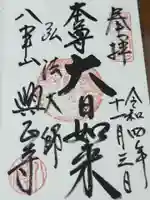 奉拝
令和四年
十一月三日
本尊大日如来
弘法大師
八事山興正寺